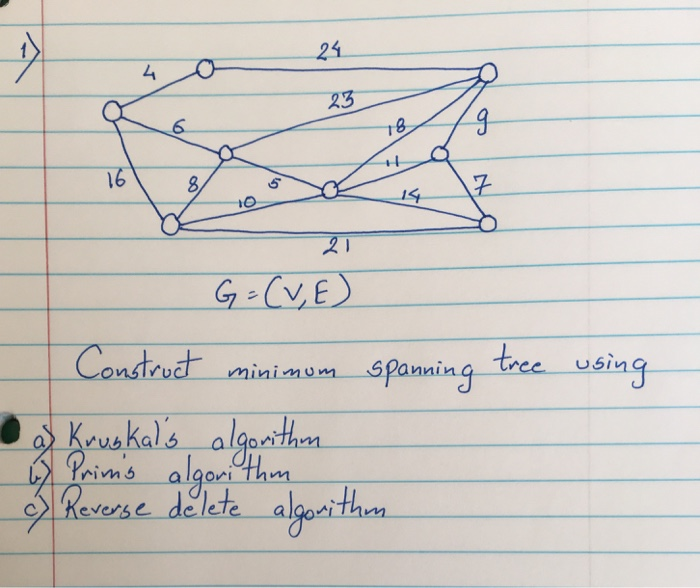 1)
24
4
23
6
18
9
11
16
8
5
7
10
14
21
G = (V, E)
Construct minimum spanning tree using
a) Kruskal's algorithm
b) Prim's algorithm
c) Reverse delete algorithm